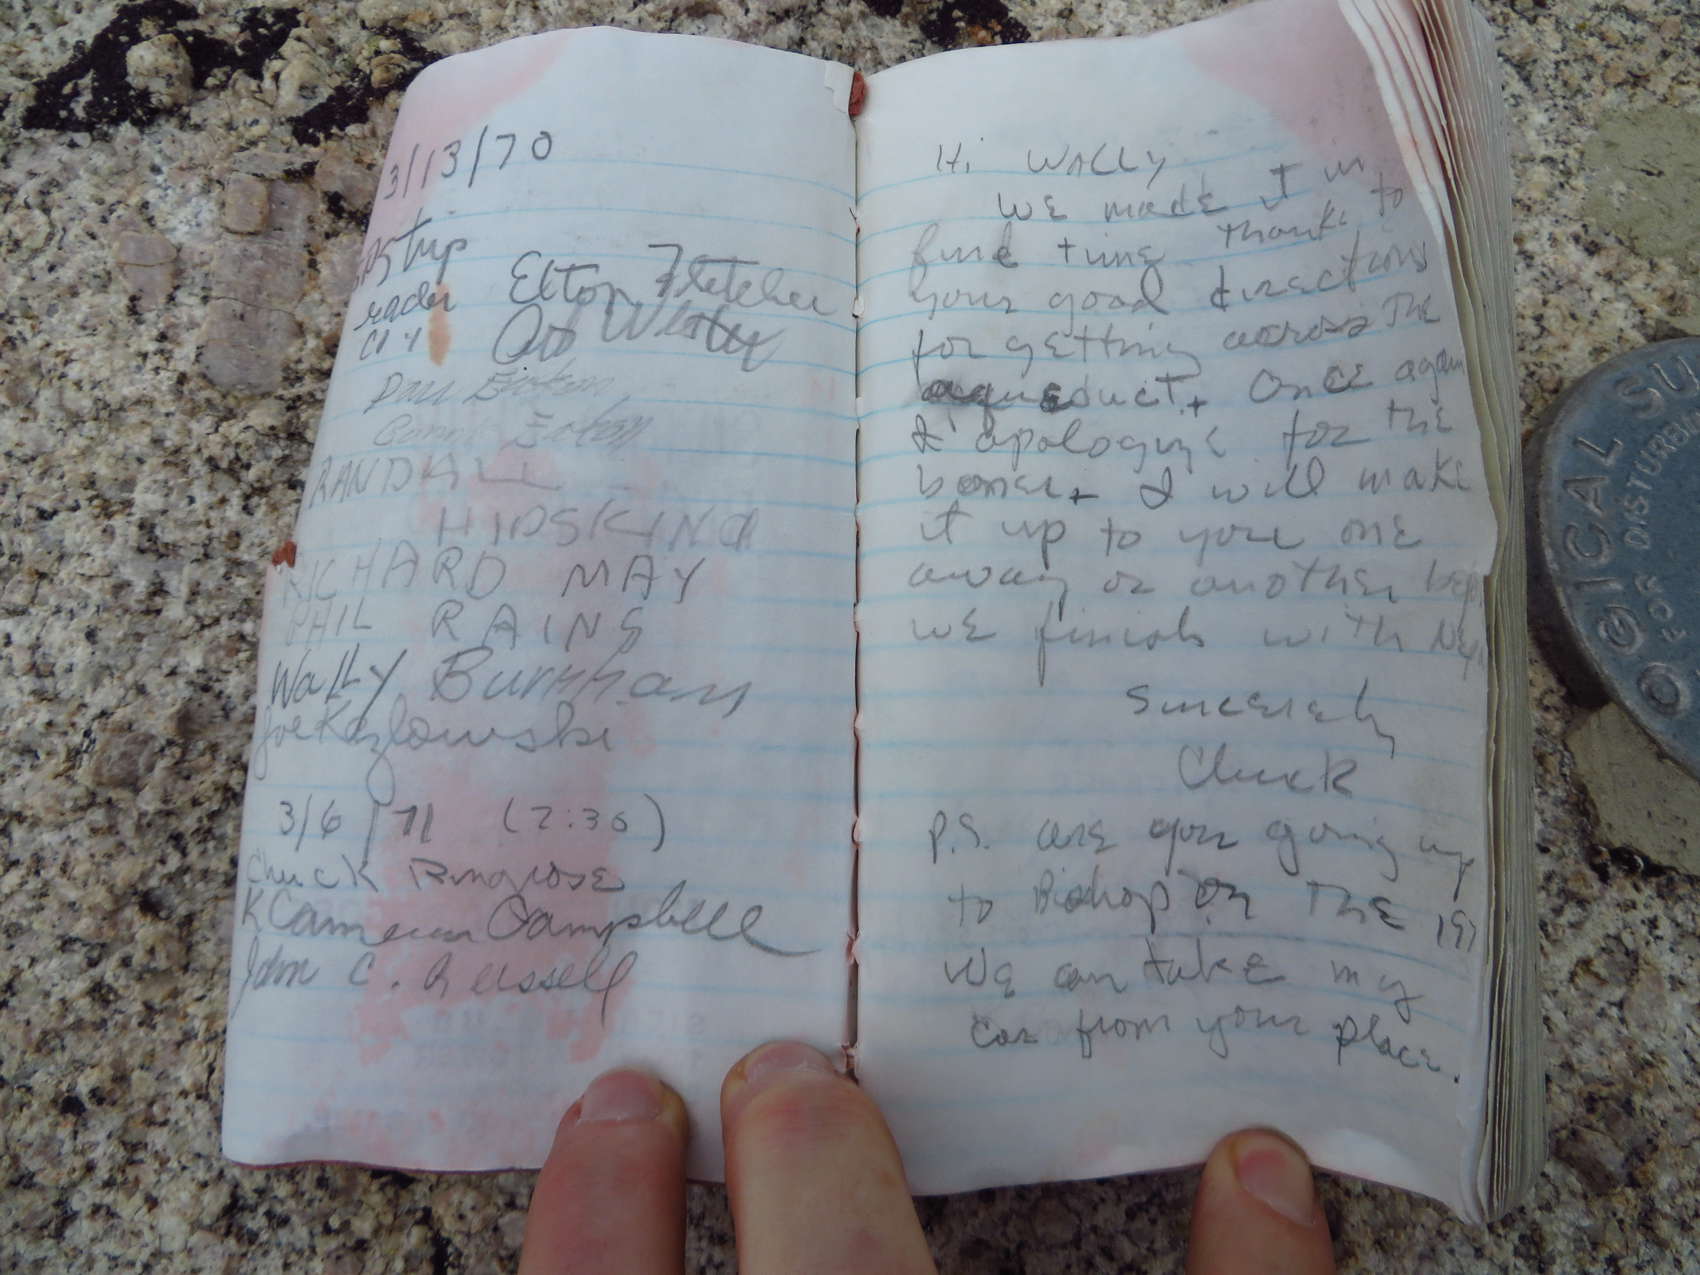 3/13/70
trip
Elton Fletcher
Art
RANDALL
HIDSKIND
RICHARD MAY
PHIL RAINS
Wally Burnham
Joe Kozlowski
3/6/71 (2:30)
Chuck Ringrose
K Cameron Campbell
John C. Russell
Hi Wally
We made it in
fine time thanks to
your good directions
for getting across the
aqueduct. Once again
I apologize for the
I will make
it up to you one
away or another
we finish with
Sincerely
Chuck
P.S. are you going up
to Bishop on The
We can take my
car from your place.
OGICAL SU
FOR DISTURBI